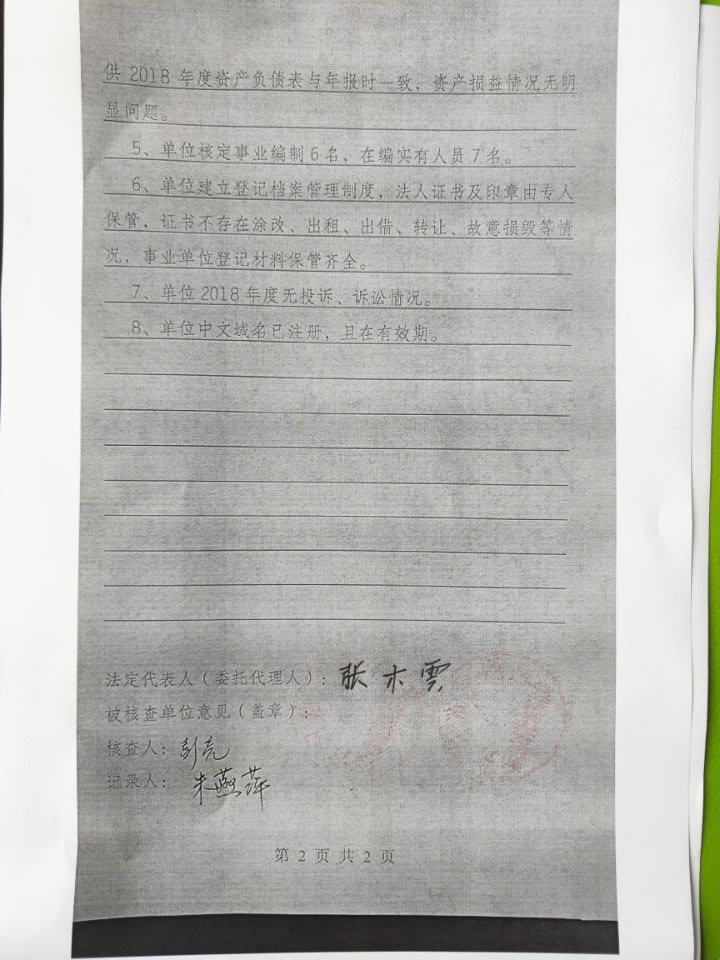 供 2018 年度资产负债表与年报时一致，资产损益情况无明
显问题。
5、单位核定事业编制 6 名、在编实有人员 7 名。
6、单位建立登记档案管理制度，法人证书及印章由专人
保管，证书不存在涂改、出租、出借、转让、故意损毁等情
况，事业单位登记材料保管齐全。
7、单位 2018 年度无投诉、诉讼情况。
8、单位中文域名已注册，且在有效期。
法定代表人（委托代理人）：张木雲
被核查单位意见（盖章）：
核查人：彭亮
记录人：朱燕萍
第 2 页 共 2 页